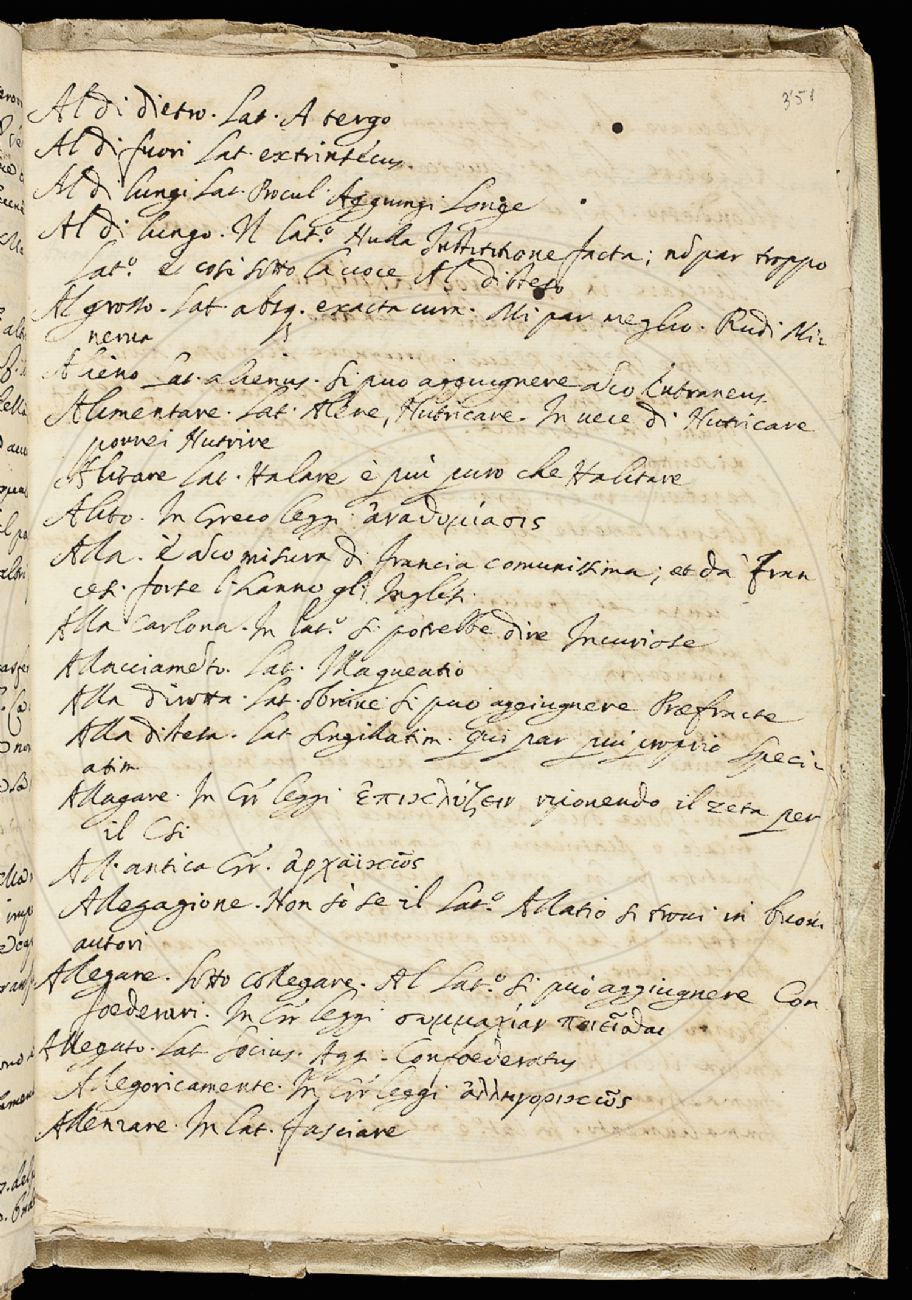 351
Al di dietro. Lat. A tergo
Al di fuori Lat. extrinsecus.
Al di lungi Lat. Procul. Aggiungi Longe
Al di lungo. Il lat.º Nulla Intistitione facta; nõ par troppo
Lat.º e così sotto la uoce Al disteso
Al grosso. Lat. absq. exacta cura. Mi par meglio. Rudi Mi-
nerua
Alieno Lat. alienus. Si può aggiugnere aĩco Extraneus.
Alimentare. Lat. Alere, Nutricare. In uece di Nutricare
porrei Nutrire
Alitare Lat. Halare è più puro che Halitare
Alito. In Greco leggi ἀναθυμίασις
Alla. È aĩco misura di Francia comunissima; et da' Fran
cesi forse l'hanno gli Inglesi.
Alla carlona. In lat.º si potrebbe dire Incuriose
Allacciamẽto. Lat. Illaqueatio
Alla dirotta. Lat. obnixe. Si può aggiugnere Præfracte
Alla distesa. Lat singillatim. Qui par più proprio speci-
atim
Allagare. In Gr̃. leggi ἐπικλύζειν riponendo il zeta per
il Csi
All'antica Gr̃. ἀρχαϊκῶς
Allegagione. Non so se il Lat.º Allatio si troui in buoni
autori
Allegare. sotto collegare. Al Lat.º si può aggiugnere Con
foederari. In Gr̃ leggi συμμαχίαν ποιεῖσθαι
Allegato. Lat Socius. Agg. Confoederatus
Allegoricamente. In Gr̃ leggi ἀλληγορικῶς
Allenzare. In Lat. fasciare